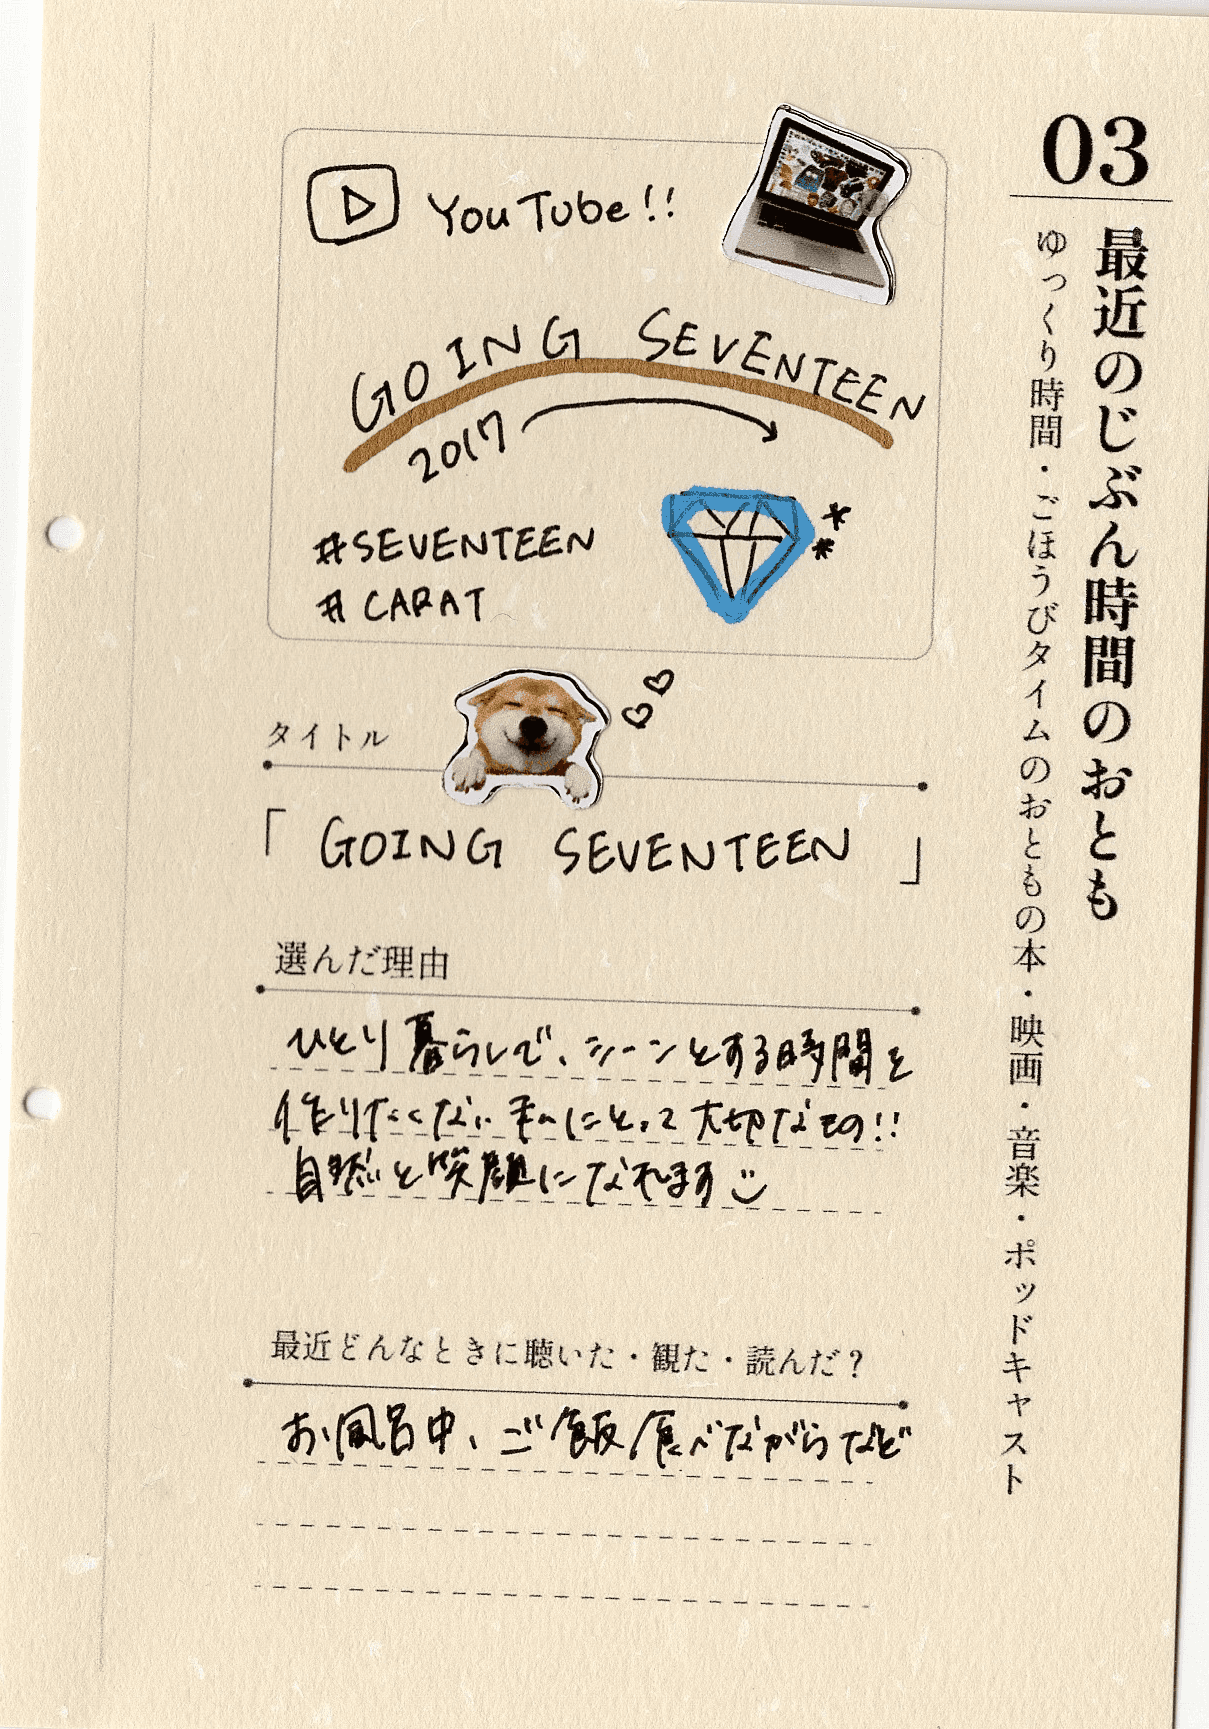 03
最近のじぶん時間のおとも
ゆっくり時間・ごほうびタイムのおともの本・映画・音楽・ポッドキャスト
YouTube!!
GOING SEVENTEEN
2017
#SEVENTEEN
#CARAT
タイトル
「 GOING SEVENTEEN 」
選んだ理由
ひとり暮らしで、シーンとする時間を
作りたくない私にとって大切なもの!!
自然と笑顔になれます
最近どんなときに聴いた・観た・読んだ？
お風呂中、ご飯食べながらなど